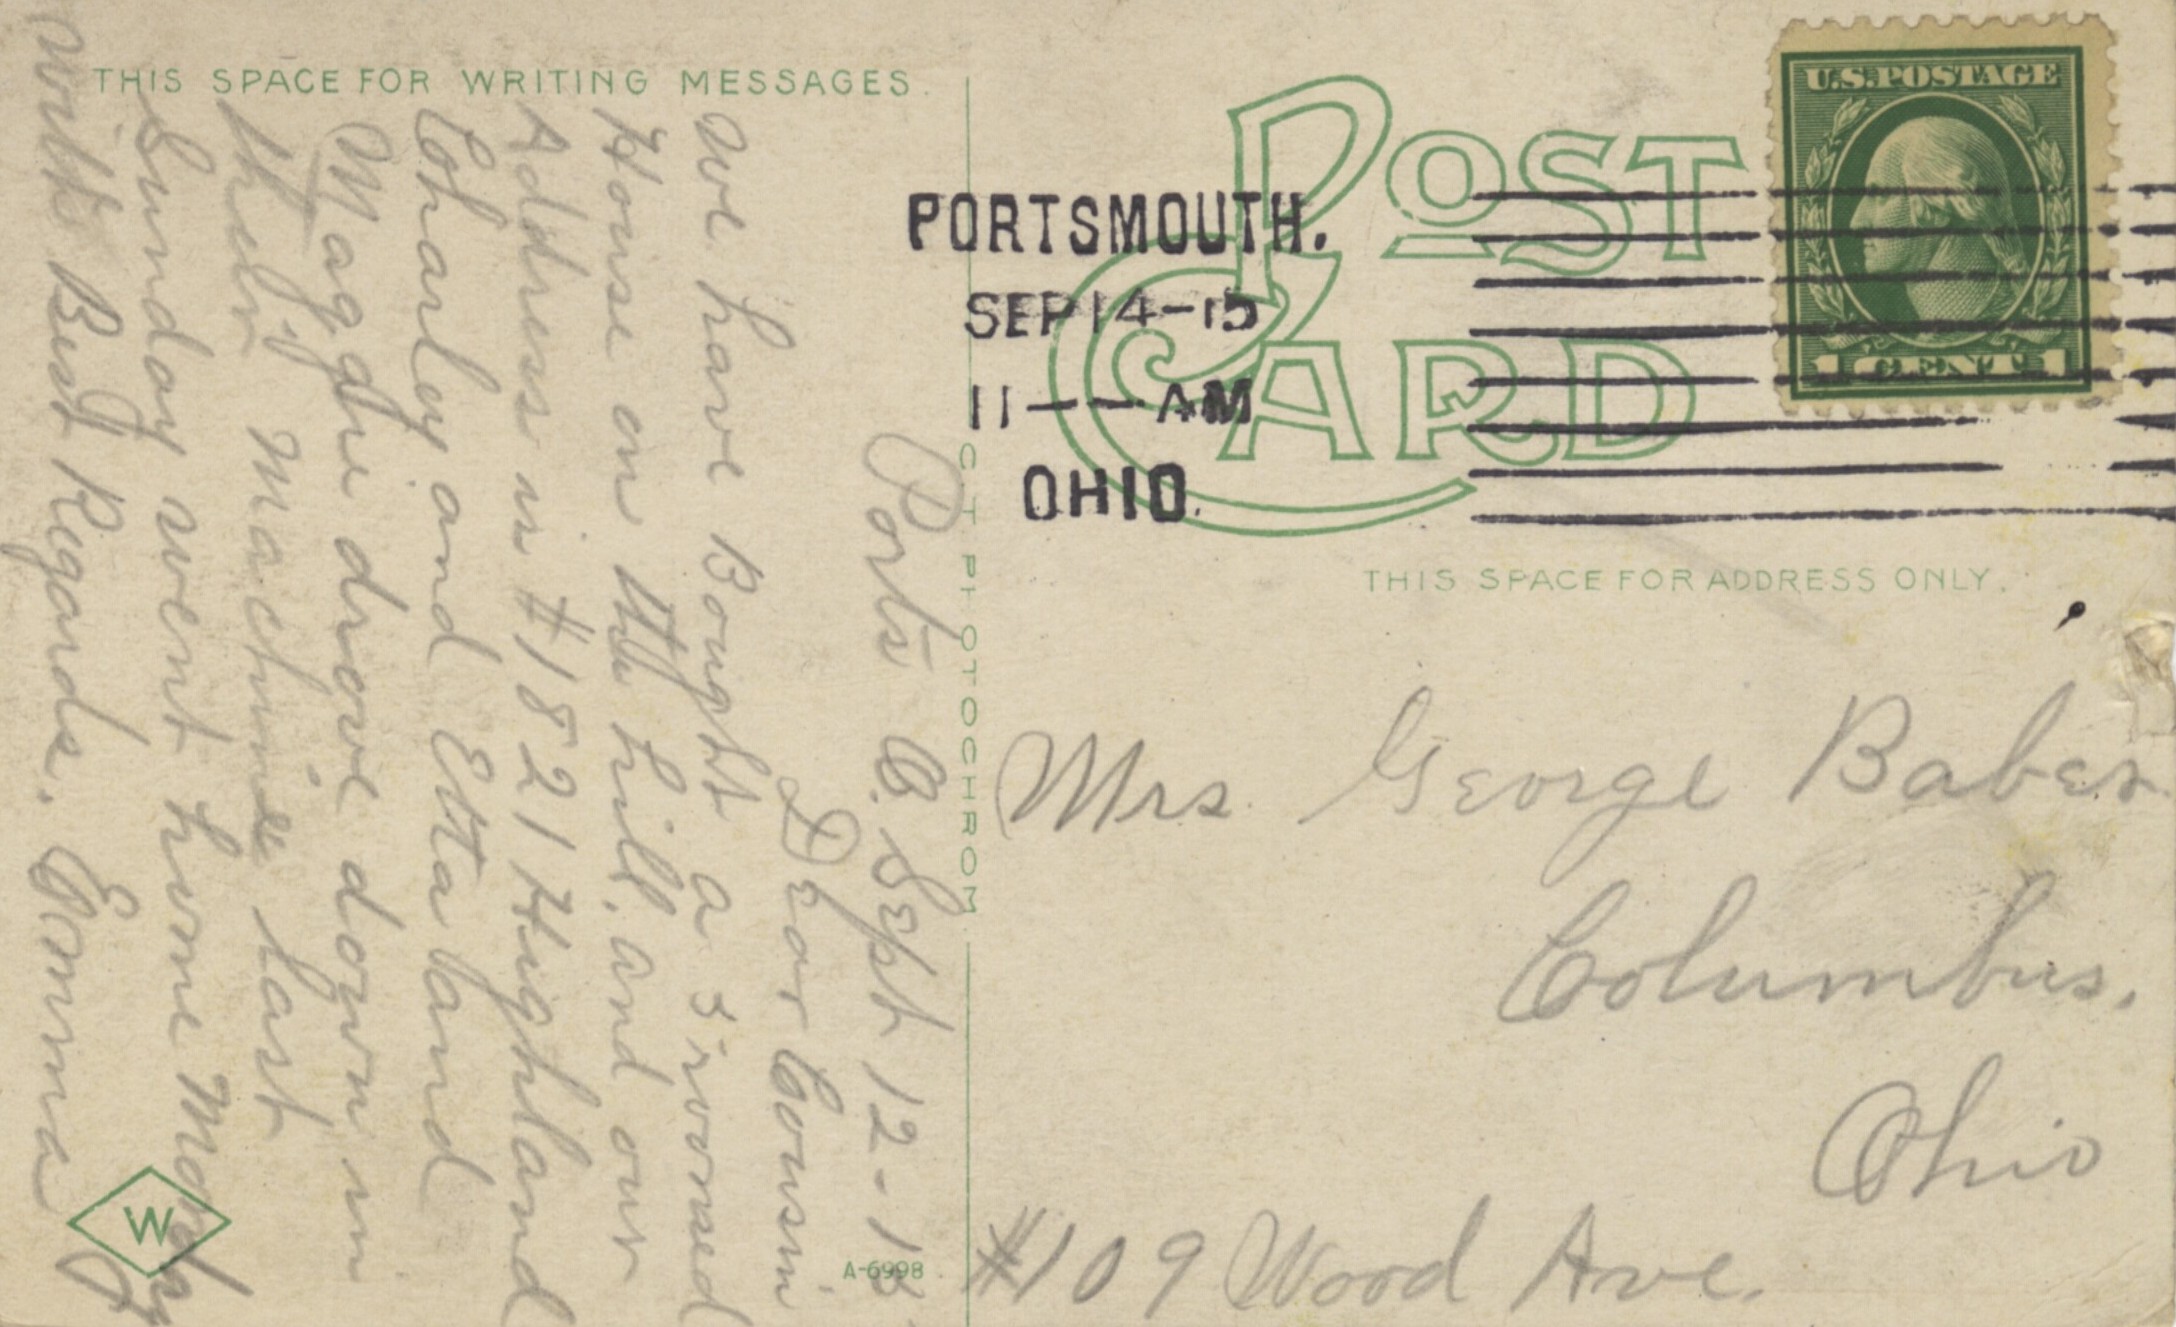 THIS SPACE FOR WRITING MESSAGES.
POST
CARD
U.S. POSTAGE
1 CENT 1
PORTSMOUTH.
SEP 14-15
11--AM
OHIO.
THIS SPACE FOR ADDRESS ONLY.
Mrs George Baber
Columbus,
Ohio
#109 Wood Ave.
C.T. PHOTOCHROM
A-6998
W
Ports O. Sept 12-15
Dear Cousin
We have Bought a 5 roomed
House on the hill, and our
Address is #1821 Highland
Charley and Etta and
Maggie drove down in
their Machine last
Sunday went home Monday
with Best Regards. Emma